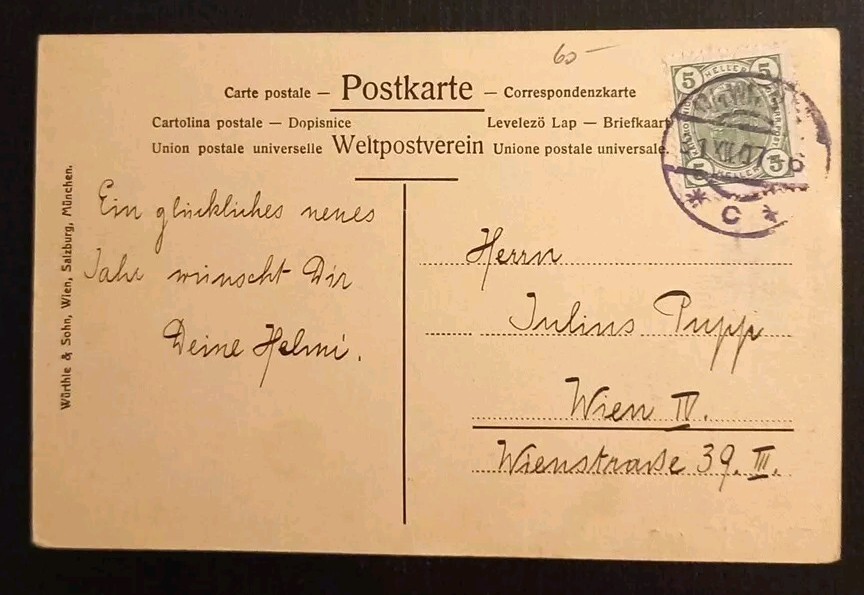 60 —
Carte postale — Postkarte — Correspondenzkarte
Cartolina postale — Dopisnice Levelezö Lap — Briefkaart
Union postale universelle Weltpostverein Unione postale universale.
5 HELLER 5
5 HELLER 5
XII. 07
* C *
Ein glückliches neues
Jahr wünscht Dir
Deine Helmi.
Herrn
Julius Pupp
Wien IV.
Wienstrasse 39. III.
Würthle & Sohn, Wien, Salzburg, München.